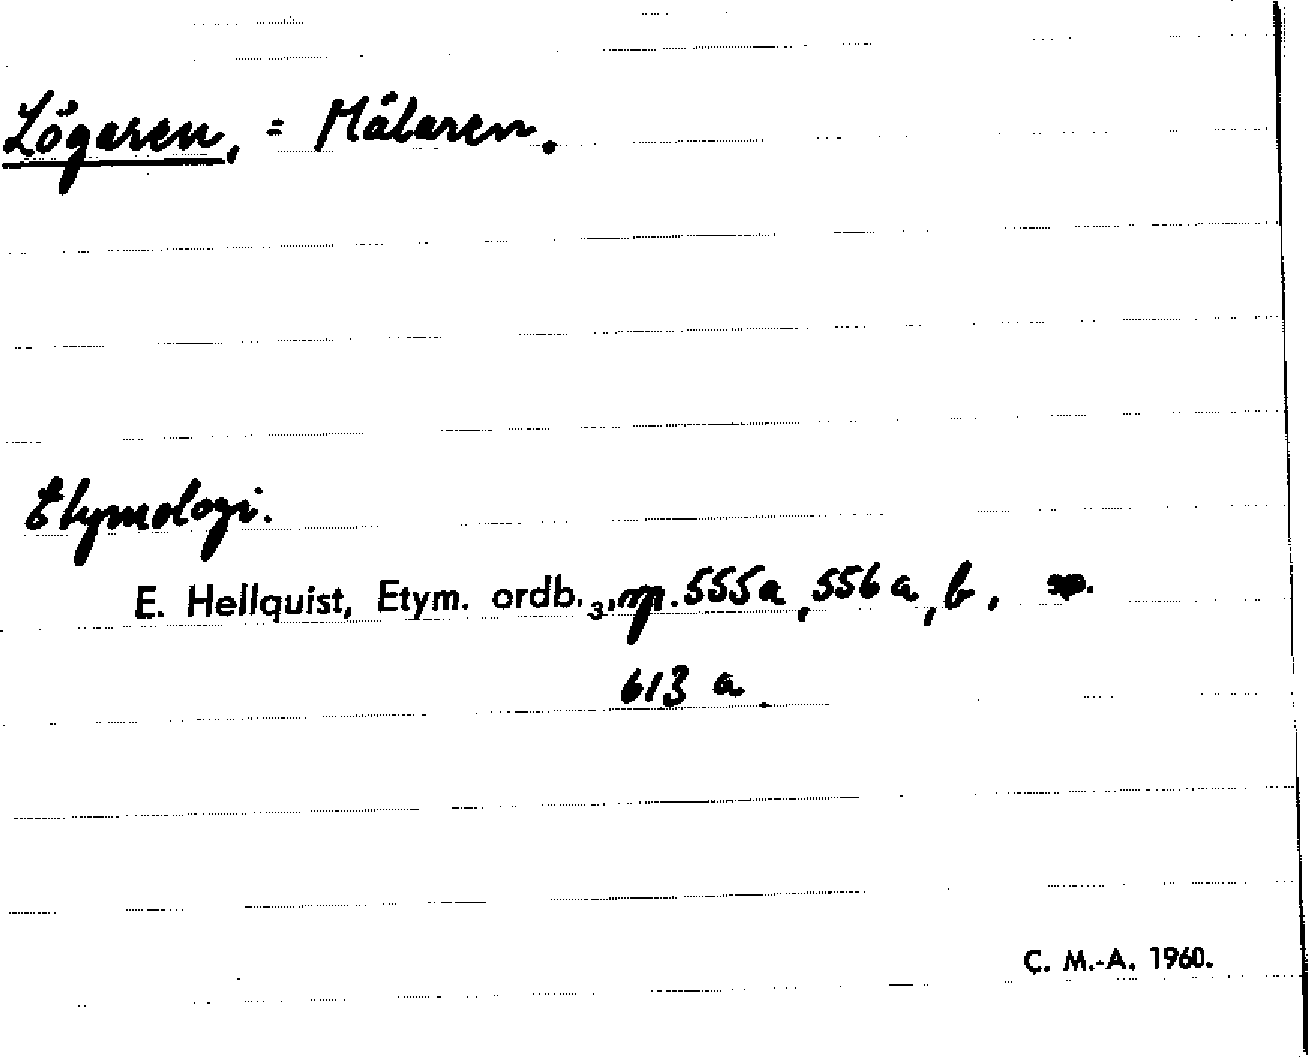 Lögaren, = Mälaren.
Etymologi.
E. Hellquist, Etym. ordb.₃, sp. 555a, 556 a, b,
613 a.
C. M.-A. 1960.